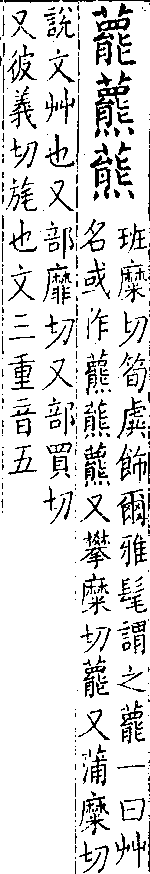 藣
班糜切筍虡飾爾雅髦謂之藣一曰艸
名或作又攀糜切藣又蒲糜切
說文艸也又部靡切又部買切
又彼義切旄也文三重音五